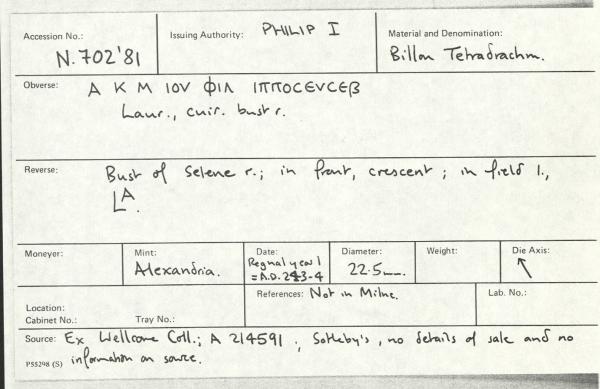 Accession No.: N.702'81
Issuing Authority: PHILIP I
Material and Denomination: Billon Tetradrachm.
Obverse: Α Κ Μ ΙΟV ΦΙΛ ΙΠΠΟCEVCEβ
Laur., cuir. bust r.
Reverse: Bust of Selene r.; in front, crescent; in field l.,
LA.
Moneyer:
Mint: Alexandria.
Date: Regnal year 1
= A.D. 243-4
Diameter: 22.5mm.
Weight:
Die Axis: ↖
Location:
Cabinet No.:
Tray No.:
References: Not in Milne.
Lab. No.:
Source: Ex Wellcome Coll.; A 214591; Sotheby's, no details of sale and no
P55298 (S) information on source.